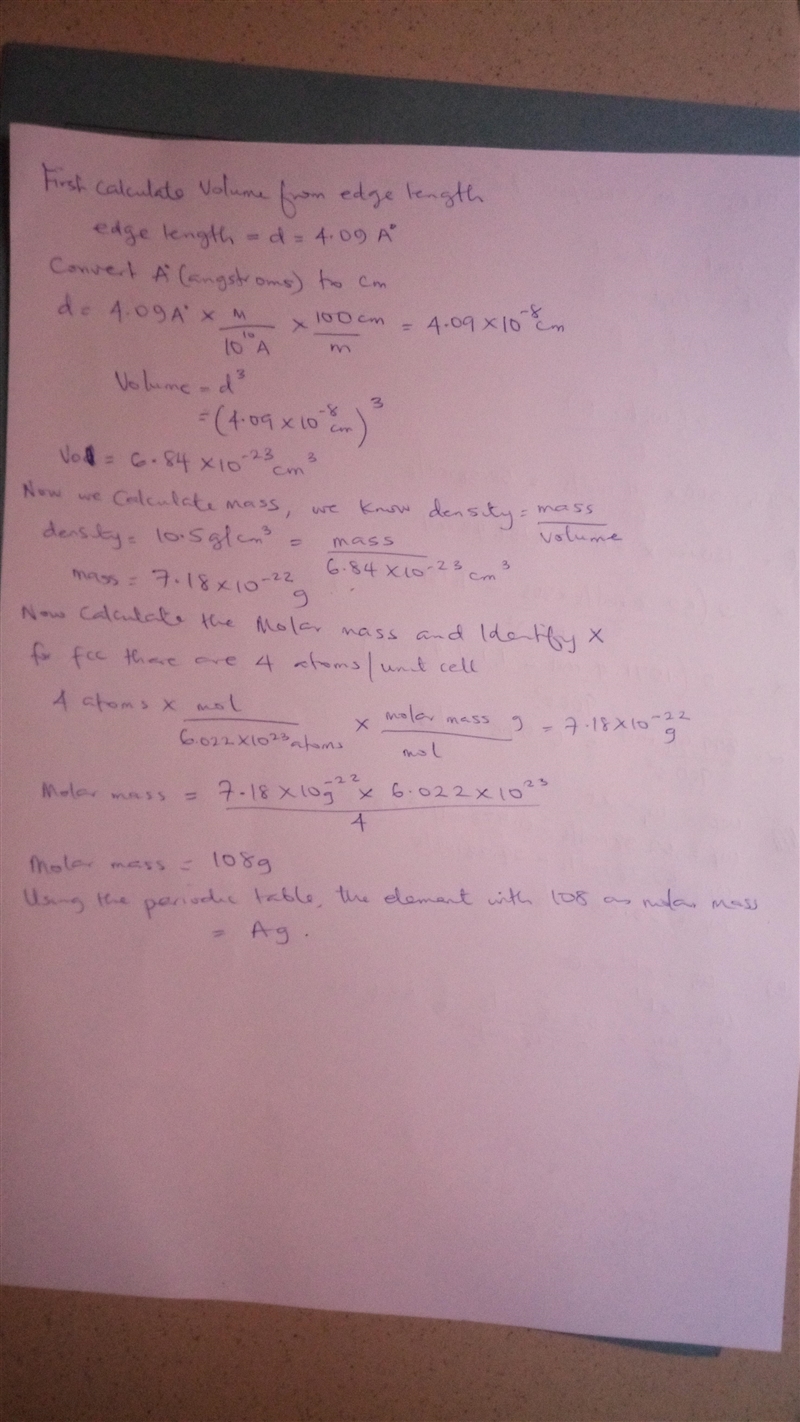 First calculate Volume from edge length
edge length = d = 4.09 A°
Convert A° (angstroms) to cm
d = 4.09A° × M/10^10 A × 100cm/m = 4.09 × 10^-8 cm
Volume = d^3
= (4.09 × 10^-8 cm)^3
Vol = 6.84 × 10^-23 cm^3
Now we Calculate mass, we know density = mass/Volume
density = 10.5g/cm^3 = mass/6.84 × 10^-23 cm^3
mass = 7.18 × 10^-22 g
Now Calculate the Molar mass and Identify X
for fcc there are 4 atoms/unit cell
4 atoms × mol/6.022 × 10^23 atoms × molar mass g/mol = 7.18 × 10^-22 g
Molar mass = 7.18 × 10^-22 g × 6.022 × 10^23/4
Molar mass = 108g
Using the periodic table, the element with 108 as molar mass
= Ag.